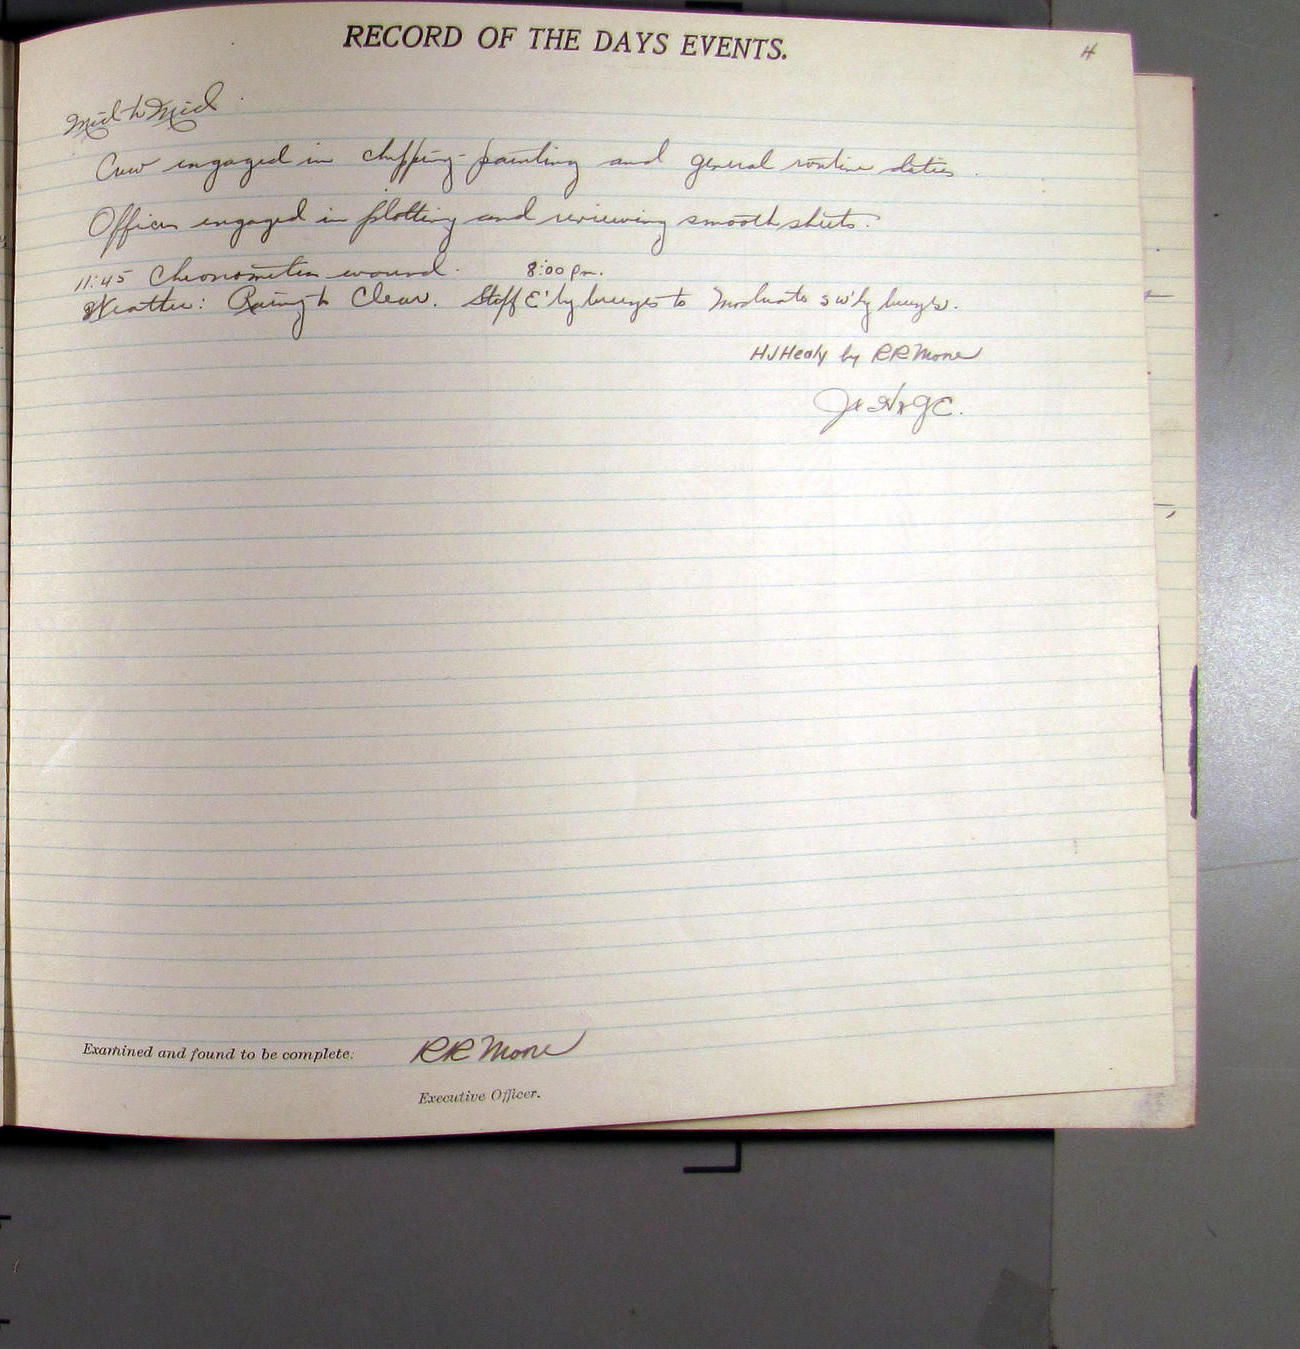 RECORD OF THE DAYS EVENTS.
4
Mid to Mid
Crew engaged in chipping-painting and general routine duties.
Officers engaged in plotting and reviewing smooth sheets.
11:45 Chronometers wound. 8:00 pm.
Weather: Raining to Clear. Stiff E'ly breezes to Moderate SW'ly breezes.
HJHealy by RRMoore
Jr H&GE.
Examined and found to be complete: RRMoore
Executive Officer.